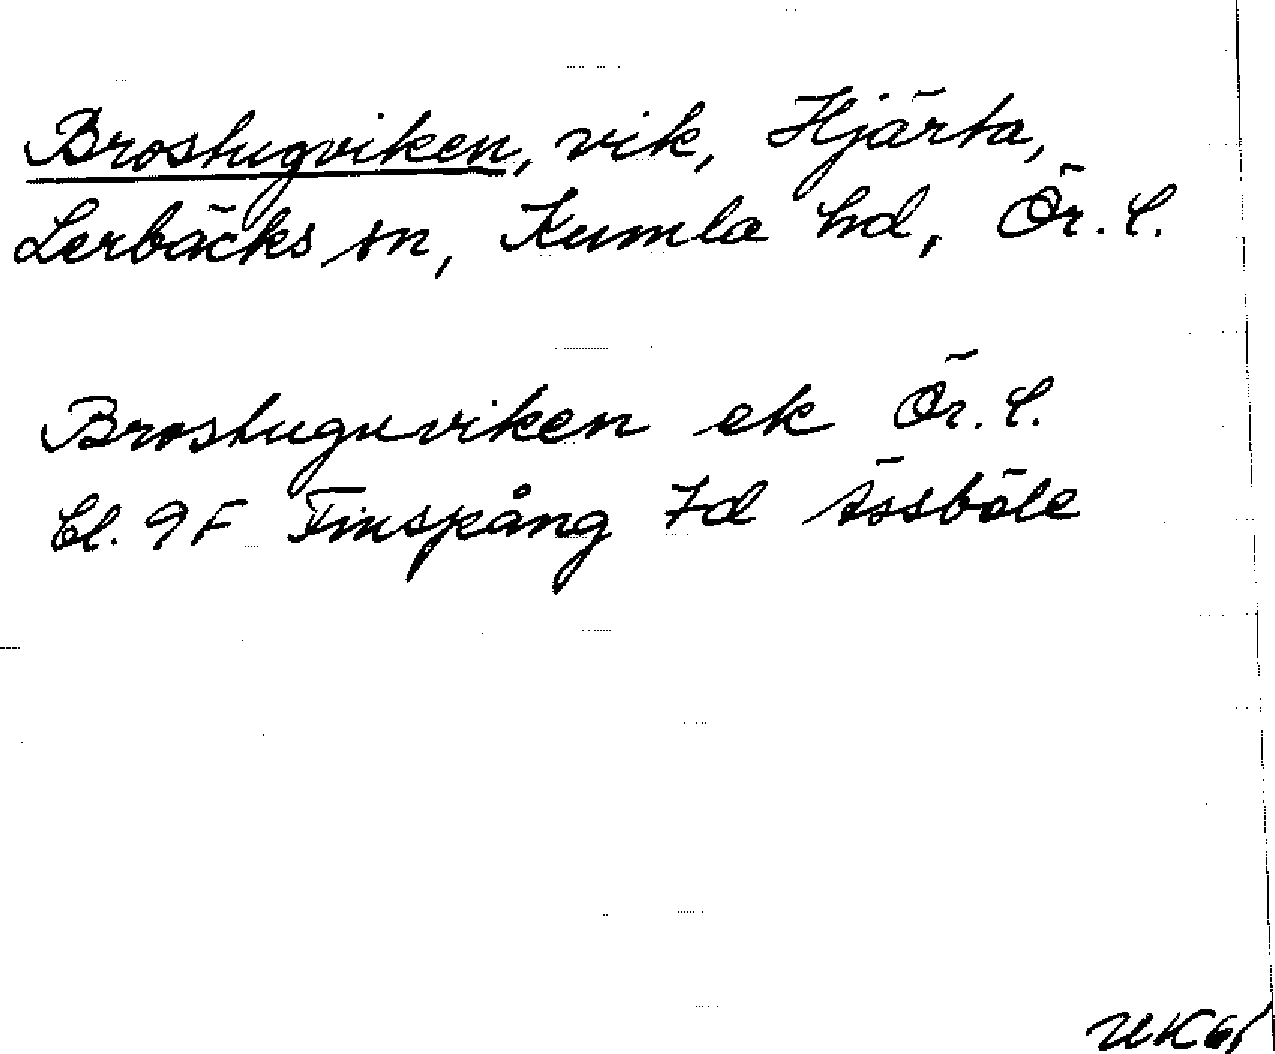 Brostugviken, vik, Hjärta,
Lerbäcks sn, Kumla hd, Ör. l.
Brostuguviken ek Ör. l.
bl. 9F Finspång 7d Åssböle
UK61